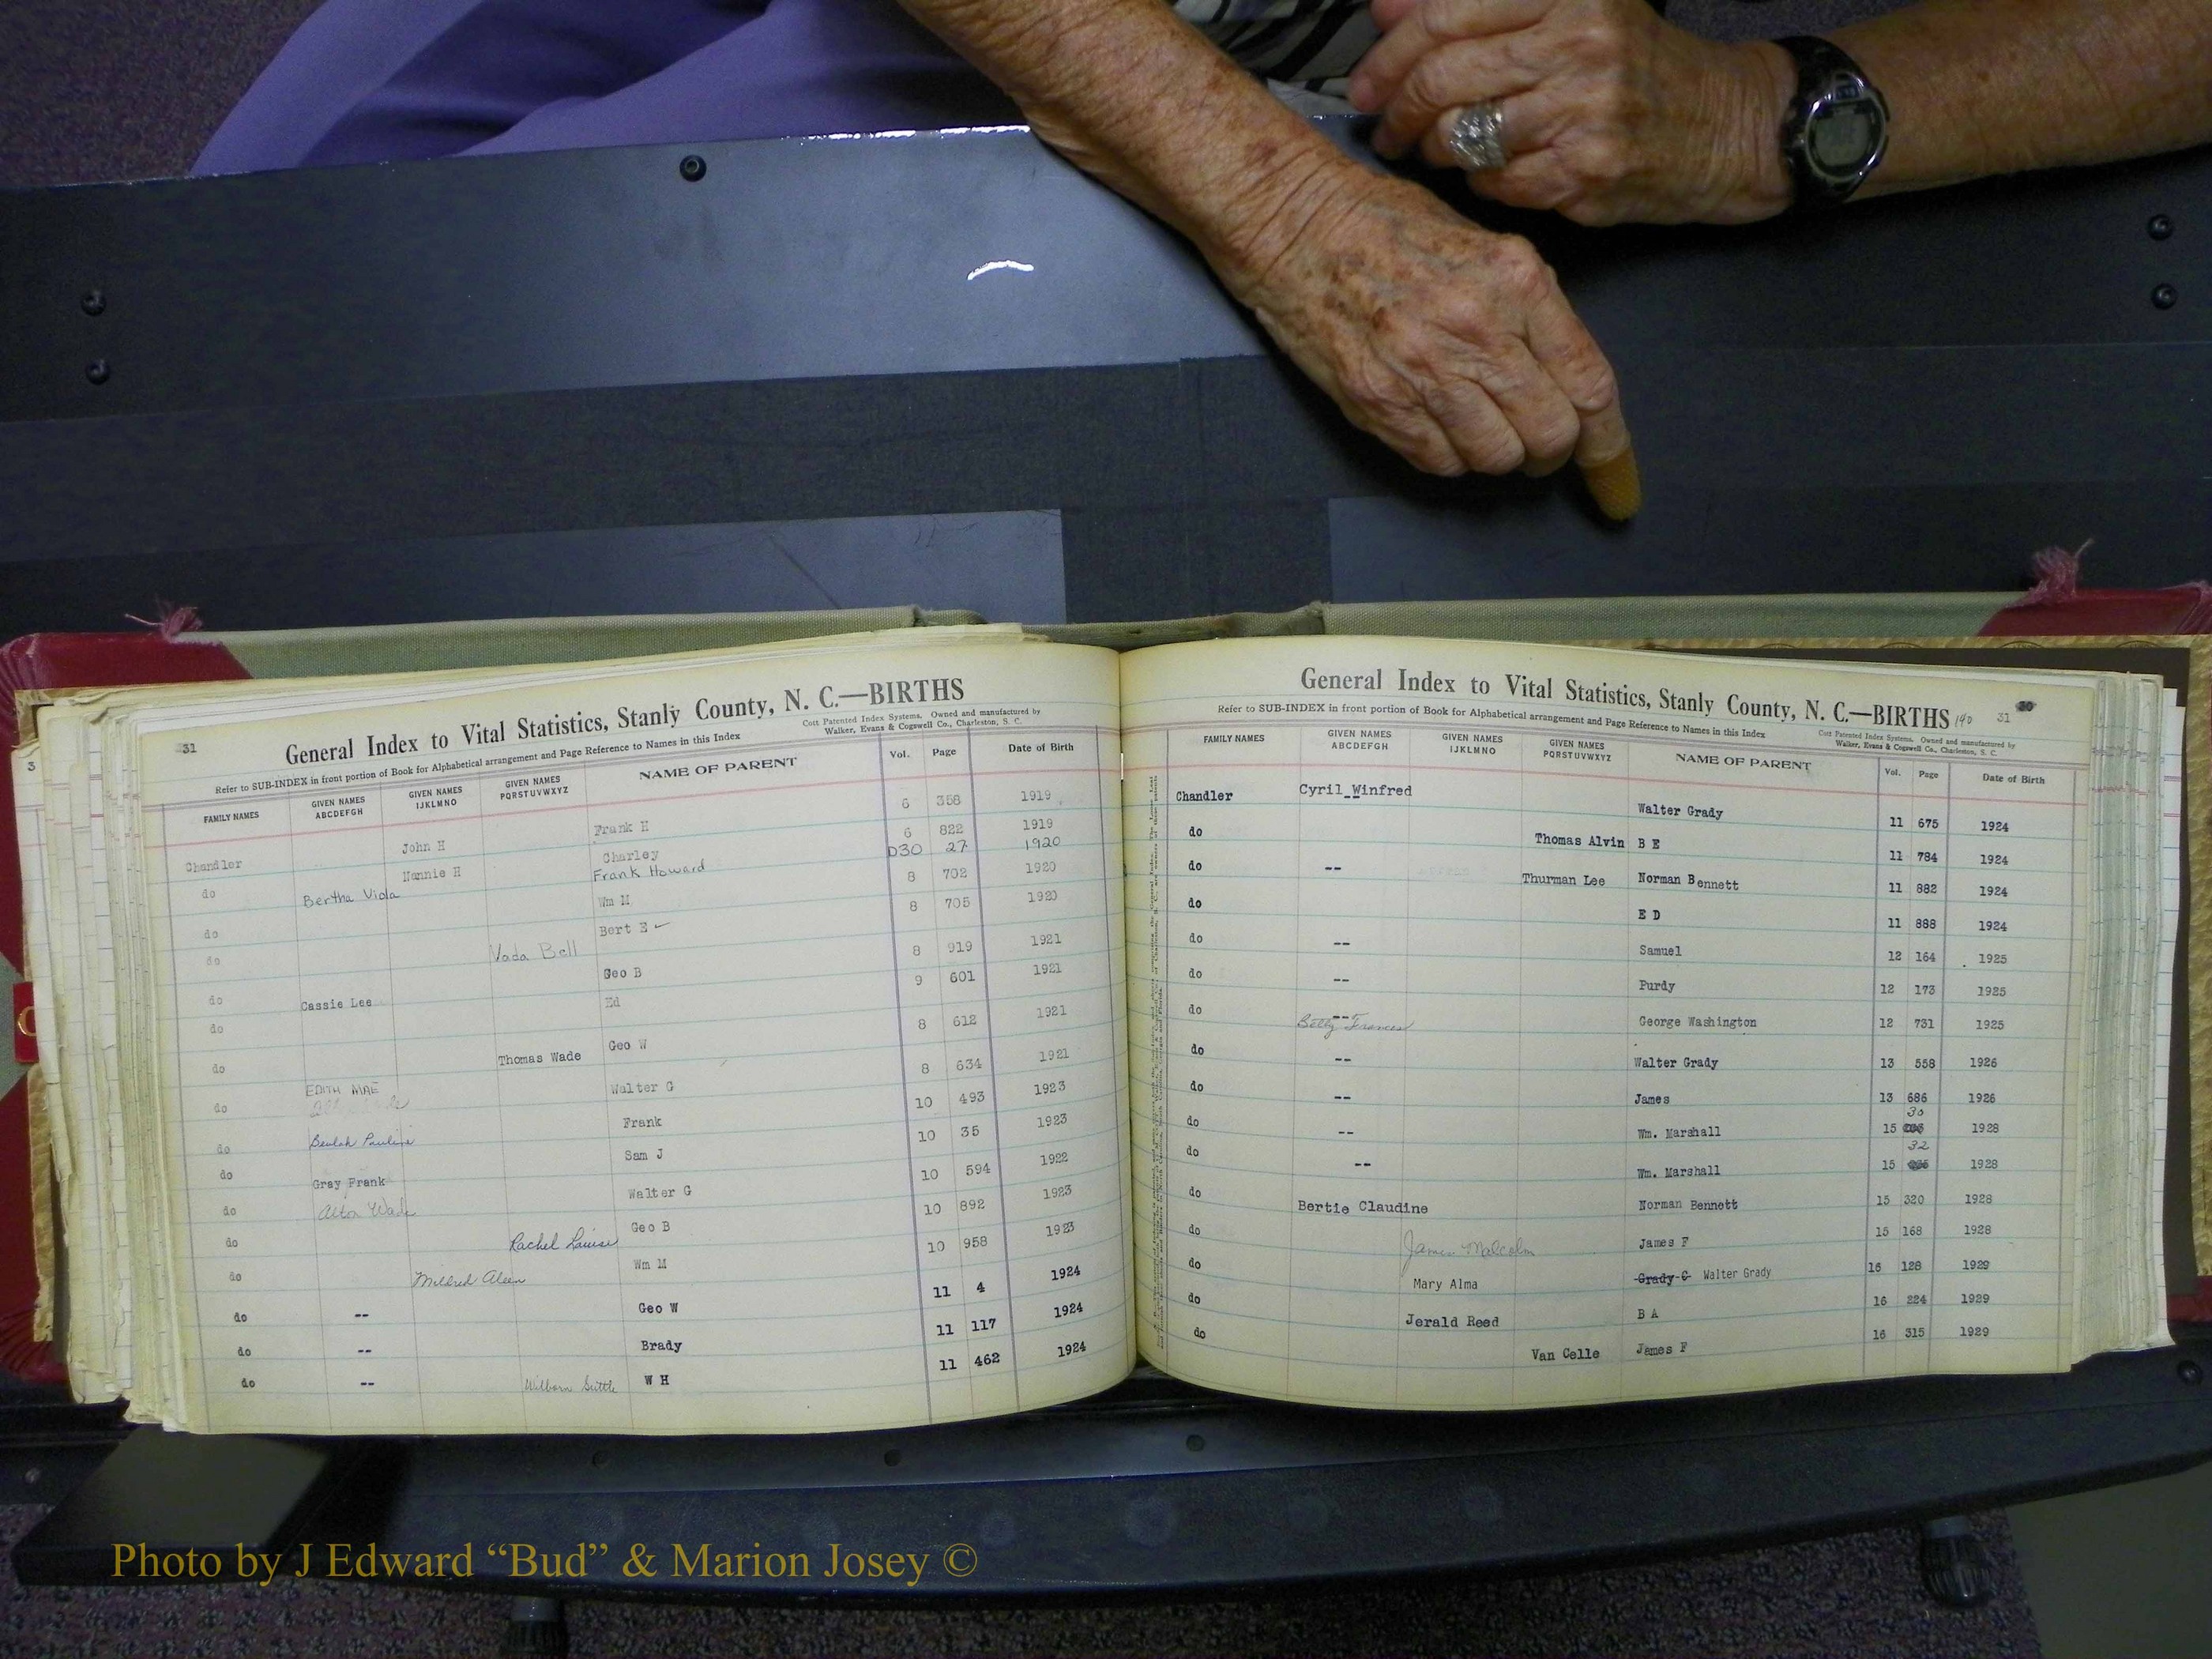 31
General Index to Vital Statistics, Stanly County, N. C.—BIRTHS
Refer to SUB-INDEX in front portion of Book for Alphabetical arrangement and Page Reference to Names in this Index
Cott Patented Index Systems. Owned and manufactured by
Walker, Evans & Cogswell Co., Charleston, S. C.
FAMILY NAMES GIVEN NAMES ABCDEFGH GIVEN NAMES IJKLMNO GIVEN NAMES PQRSTUVWXYZ NAME OF PARENT Vol. Page Date of Birth
Chandler John H Frank H 6 358 1919
do Nannie H Charley 6 822 1919
Bertha Viola Frank Howard D30 27 1920
do Wm M 8 702 1920
do Vada Bell Bert E 8 705 1920
do Cassie Lee Geo B 8 919 1921
do Ed 9 601 1921
do Thomas Wade Geo W 8 612 1921
do EDITH MAE Walter G 8 634 1921
do Beulah Pauline Frank 10 493 1923
do Gray Frank Sam J 10 35 1923
do Alton Wade Walter G 10 594 1922
do Rachel Louise Geo B 10 892 1923
do Mildred Aleen Wm M 10 958 1923
do -- Geo W 11 4 1924
do -- Brady 11 117 1924
do -- Wilborn Suttle W H 11 462 1924
General Index to Vital Statistics, Stanly County, N. C.—BIRTHS 190 31
Refer to SUB-INDEX in front portion of Book for Alphabetical arrangement and Page Reference to Names in this Index
Cott Patented Index Systems. Owned and manufactured by
Walker, Evans & Cogswell Co., Charleston, S. C.
FAMILY NAMES GIVEN NAMES ABCDEFGH GIVEN NAMES IJKLMNO GIVEN NAMES PQRSTUVWXYZ NAME OF PARENT Vol. Page Date of Birth
Chandler Cyril Winfred Walter Grady 11 675 1924
do Thomas Alvin B E 11 784 1924
do -- Thurman Lee Norman Bennett 11 882 1924
do E D 11 888 1924
do -- Samuel 12 164 1925
do -- Purdy 12 173 1925
do -- Betty Frances George Washington 12 731 1925
do -- Walter Grady 13 558 1926
do -- James 13 686 1926
do -- Wm. Marshall 15 30 1928
do -- Wm. Marshall 15 32 1928
do Bertie Claudine Norman Bennett 15 320 1928
do James Malcolm James F 15 168 1928
do Mary Alma Grady C Walter Grady 16 128 1929
do Jerald Reed B A 16 224 1929
do Van Celle James F 16 315 1929
Photo by J Edward “Bud” & Marion Josey ©